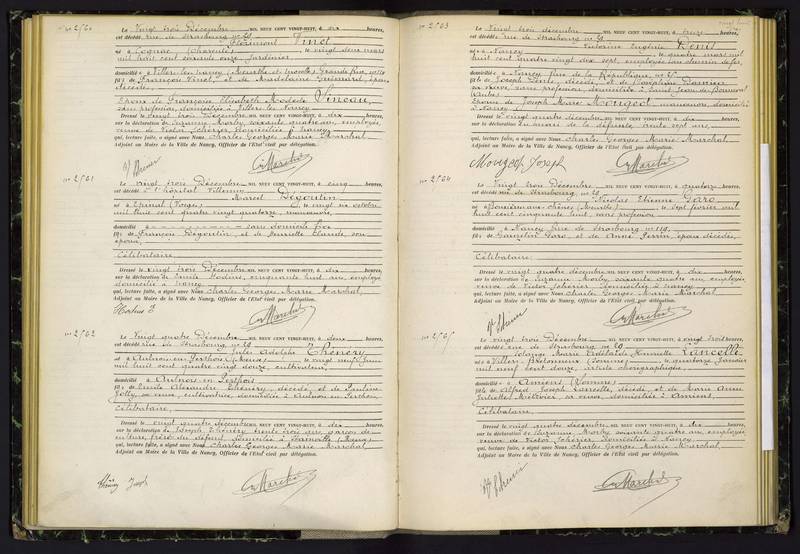 no 2560
Le Vingt trois Décembre MIL NEUF CENT VINGT-HUIT, à dix heures,
est décédé rue de Strasbourg no 29
Florimont Vinet
né à Cognac (Charente) le vingt deux mars
mil huit cent soixante onze, Jardinier
domicilié à Villers-les-Nancy (Meurthe et Moselle) Grande Rue, no 110
fils de François Vinet et de Madelaine
décédés,
Epoux de Françoise Elisabeth Modeste Vineau,
sans profession, domiciliée à Villers les Nancy
Dressé le vingt trois Décembre, MIL NEUF CENT VINGT-HUIT, à dix heures,
sur la déclaration de Suzanne Morby, soixante quatre ans, employée,
veuve de Victor Scherier, domiciliée à Nancy
qui, lecture faite, a signé avec Nous Charles Georges Marie Marchal
Adjoint au Maire de la Ville de Nancy, Officier de l'Etat civil par délégation.
no 2561
Le vingt trois Décembre, MIL NEUF CENT VINGT-HUIT, à cinq heures,
est décédé à l'hôpital Villemin
Marcel Degoutin
né à Epinal (Vosges) le vingt six octobre
mil huit cent quatre vingt quatorze, manoeuvre,
domicilié à sans domicile fixe
fils de François Degoutin et de Henriette Claude, son
épouse,
Célibataire
Dressé le vingt trois Décembre, MIL NEUF CENT VINGT-HUIT, à dix heures,
sur la déclaration de cinquante huit ans, employé
domicilié à Nancy
qui, lecture faite, a signé avec Nous Charles Georges Marie Marchal,
Adjoint au Maire de la Ville de Nancy, Officier de l'Etat civil par délégation.
no 2562
Le Vingt quatre Décembre MIL NEUF CENT VINGT-HUIT, à deux heures,
est décédé rue de Strasbourg, no 29
Jules Adolphe Thénery
né à Aulnois-en-Perthois (Meuse) le vingt neuf Juin
mil huit cent quatre vingt douze, cultivateur,
domicilié à Aulnois en Perthois
fils de Emile Alexandre Thénery, décédé, et de Pauline
Jolly, sa veuve, cultivatrice, domiciliée à Aulnois en Perthois,
Célibataire,
Dressé le vingt quatre décembre, MIL NEUF CENT VINGT-HUIT, à dix heures,
sur la déclaration de Joseph Thénery trente trois ans, garçon de
culture, frère du défunt, domicilié à (Meuse)
qui, lecture faite, a signé avec Nous Charles Georges Marie Marchal
Adjoint au Maire de la Ville de Nancy, Officier de l'Etat civil par délégation.
Thénery Joseph
no 2563
Le Vingt trois décembre MIL NEUF CENT VINGT-HUIT, à treize heures,
est décédée rue de Strasbourg no 29
Victorine Eugénie Denis
née à Nancy le quatre mai mil
huit cent quatre vingt dix sept, employée au chemin de fer,
domiciliée à Nancy rue de la République, no
fille de Joseph Denis, décédé, et de Joséphine
sa veuve, sans profession, domiciliée à Saint Jean de
(Aube)
Epouse de Joseph Marie Mougeot manoeuvre, domicilié
à Nancy
Dressé le Vingt quatre décembre MIL NEUF CENT VINGT-HUIT, à dix heures,
sur la déclaration du mari de la défunte, trente sept ans,
qui, lecture faite, a signé avec Nous Charles Georges Marie Marchal
Adjoint au Maire de la Ville de Nancy, Officier de l'Etat civil par délégation.
Mougeot Joseph
no 2564
Le Vingt trois Décembre, MIL NEUF CENT VINGT-HUIT, à quatorze heures,
est décédé rue de Strasbourg, no 29
Nicolas Etienne Garo
né à (Meurthe) le sept février mil
huit cent cinquante huit, sans profession
domicilié à Nancy rue de Strasbourg no 119,
fils de Garo et de Anne Perrin, époux décédés,
Célibataire
Dressé le vingt quatre décembre, MIL NEUF CENT VINGT-HUIT, à dix heures,
sur la déclaration de Suzanne Morby, soixante quatre ans, employée
veuve de Victor Scherier, domiciliée à Nancy
qui, lecture faite, a signé avec Nous Charles Georges Marie Marchal
Adjoint au Maire de la Ville de Nancy, Officier de l'Etat civil par délégation.
no 2565
Le vingt trois Décembre, MIL NEUF CENT VINGT-HUIT, à vingt trois heures,
est décédée rue de Strasbourg no 29
Solange Marie Henriette Lancelle
née à Villers Bretonneux (Somme) le quatorze Janvier
mil neuf cent douze, artiste chorégraphique,
domiciliée à Amiens (Somme)
fille de Alfred Joseph Lancelle, décédé et de Marie Anne
Juliette sa veuve domiciliée à Amiens,
Célibataire
Dressé le vingt quatre décembre, MIL NEUF CENT VINGT-HUIT, à dix heures,
sur la déclaration de Suzanne Morby, soixante quatre ans, employée
veuve de Victor Scherier, domiciliée à Nancy
qui, lecture faite, a signé avec Nous Charles Georges Marie Marchal
Adjoint au Maire de la Ville de Nancy, Officier de l'Etat civil par délégation.